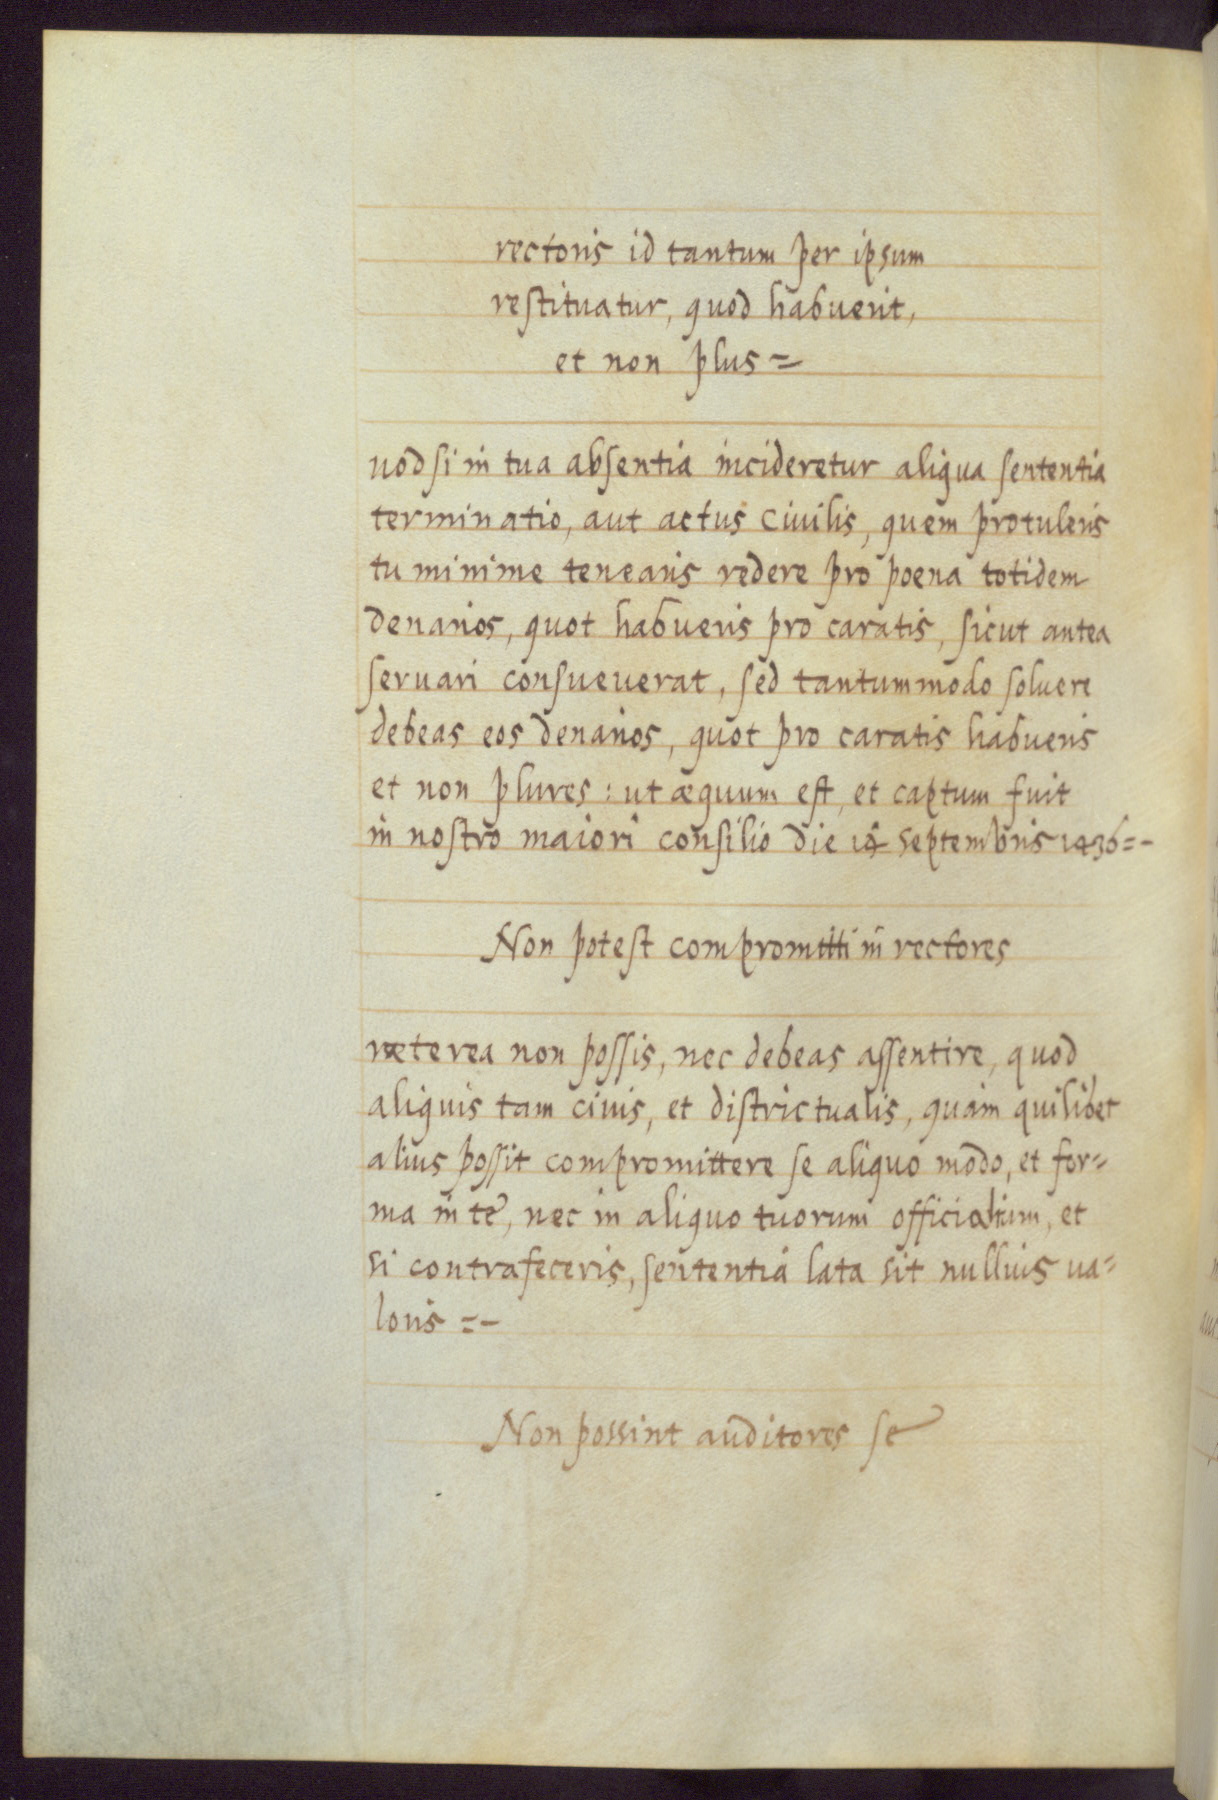 rectoris id tantum per ipsum
restituatur, quod habuerit,
et non plus =
uod si in tua absentia incideretur aliqua sententia
terminatio, aut actus ciuilis, quem protuleris
tu minime tenearis redere pro poena totidem
denarios, quot habueris pro caratis, sicut antea
seruari consueuerat, sed tantummodo soluere
debeas eos denarios, quot pro caratis habueris
et non plures : ut æquum est, et captum fuit
in nostro maiori consilio die 14 septembris 1436 =-
Non potest compromitti in rectores
ræterea non possis, nec debeas assentire, quod
aliquis tam ciuis, et districtualis, quam quilibet
alius possit compromittere se aliquo modo, et for=
ma in te, nec in aliquo tuorum officialium, et
si contrafeceris, sententia lata sit nullius ua=
loris =-
Non possint auditores se